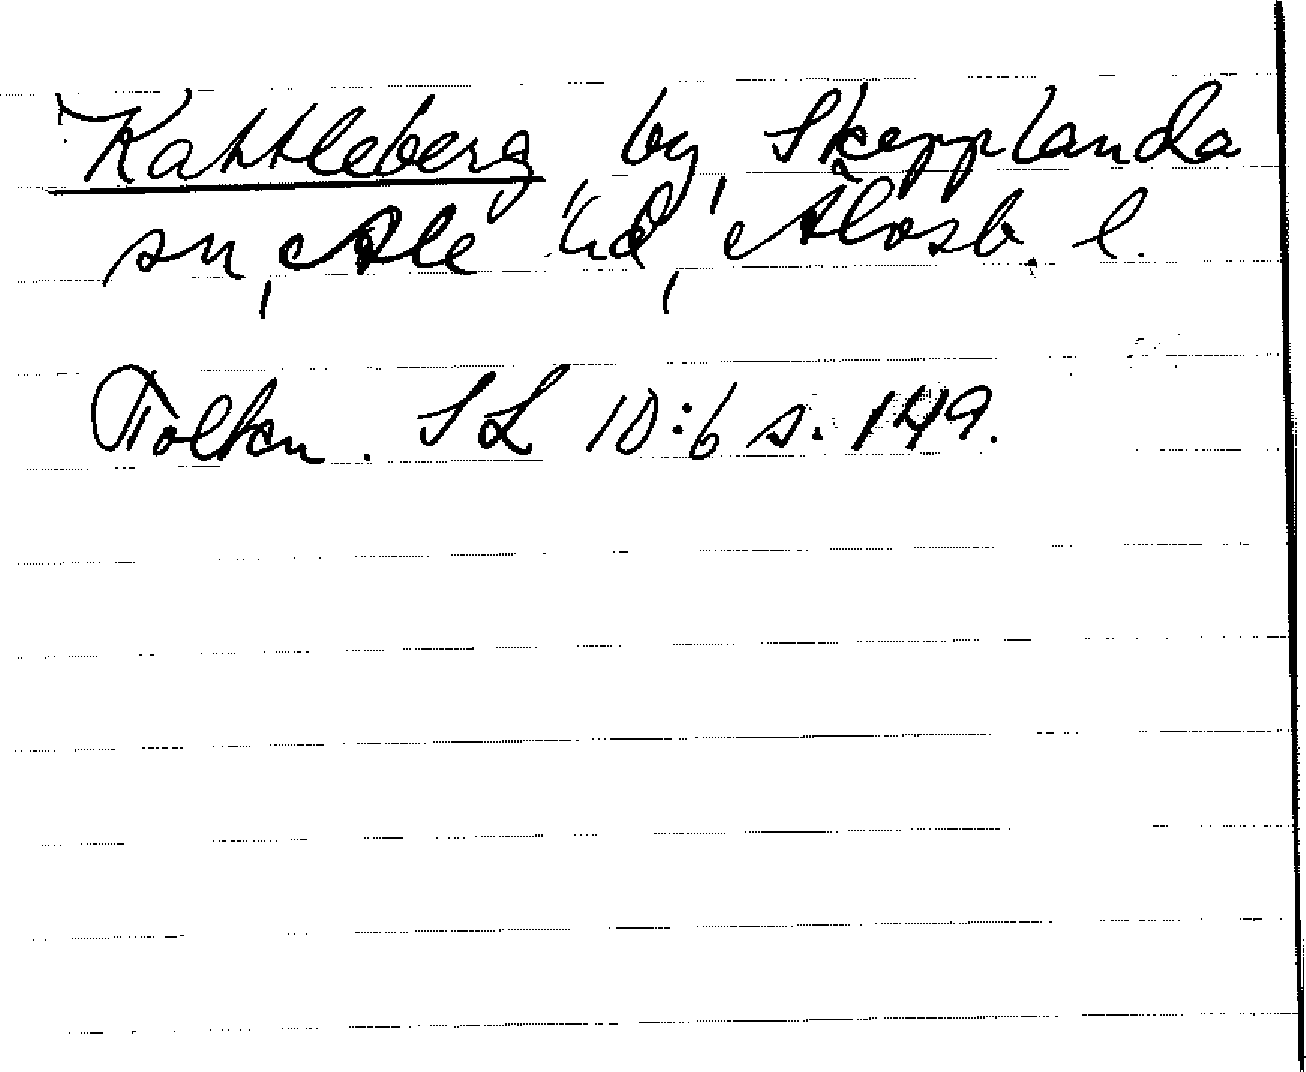 Kattleberg by, Skepplanda
sn, Ale hd, Älvsb. l.
Tolkn. SL 10:6 s. 149.